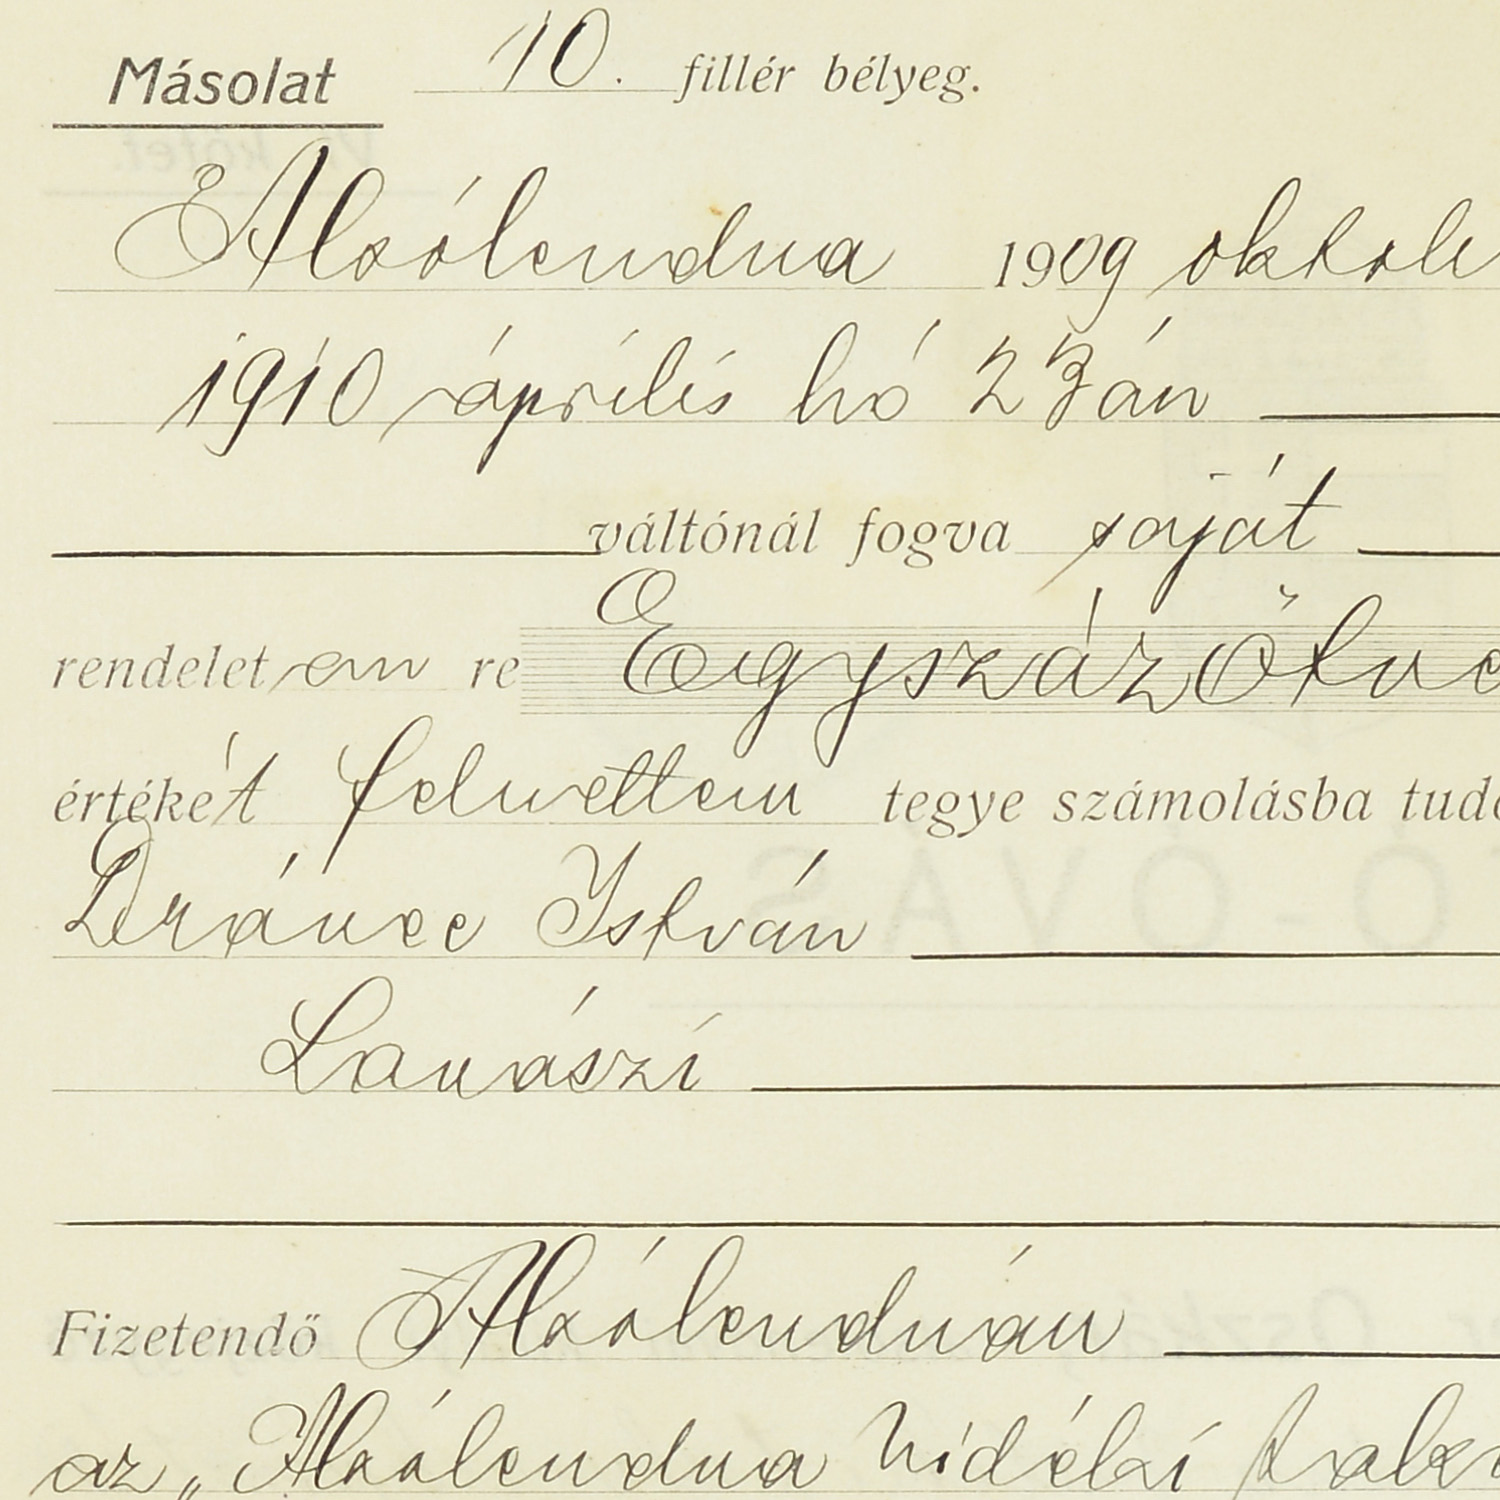 Másolat 10. fillér bélyeg.
Alsólendva 1909 oktob
1910 április hó 23án
váltónál fogva saját
rendelet en re EgyszázÖtve
értékét felvettem tegye számolásba tud
Drávec István
Lavászi
Fizetendő Alsólendván
az „Alsólendva Vidéki taka